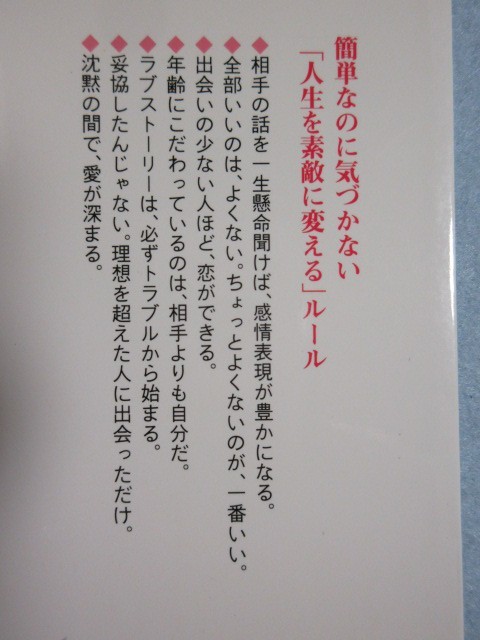 簡単なのに気づかない
「人生を素敵に変える」ルール
◆相手の話を一生懸命聞けば、感情表現が豊かになる。
◆全部いいのは、よくない。ちょっとよくないのが、一番いい。
◆出会いの少ない人ほど、恋ができる。
◆年齢にこだわっているのは、相手よりも自分だ。
◆ラブストーリーは、必ずトラブルから始まる。
◆妥協したんじゃない。理想を超えた人に出会っただけ。
◆沈黙の間で、愛が深まる。